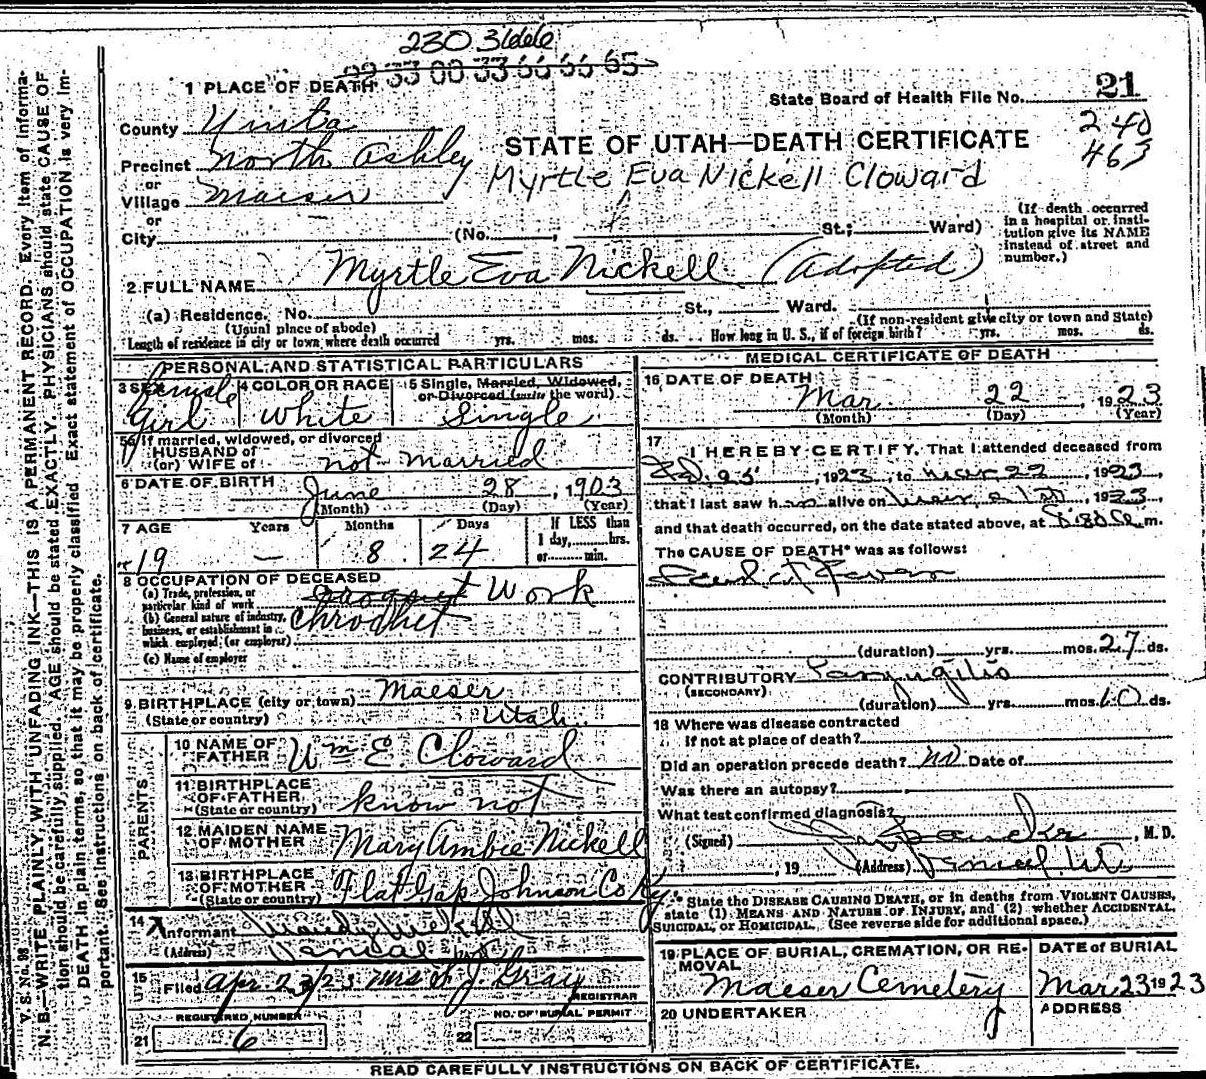 230 3666
22 33 00 33 66 66 65
21
1 PLACE OF DEATH
State Board of Health File No.
240
463
County Uinta
STATE OF UTAH—DEATH CERTIFICATE
Precinct North Ashley
Myrtle Eva Nickell Cloward
or
Village Maeser
or
City (No. , St.; Ward)
(If death occurred in a hospital or institution give its NAME instead of street and number.)
2 FULL NAME Myrtle Eva Nickell (Adopted)
(a) Residence. No. St., Ward.
(Usual place of abode) (If non-resident give city or town and State)
Length of residence in city or town where death occurred yrs. mos. ds. How long in U. S., if of foreign birth? yrs. mos. ds.
PERSONAL AND STATISTICAL PARTICULARS
3 SEX female Girl
4 COLOR OR RACE White
5 Single, Married, Widowed, or Divorced (write the word) Single
5a If married, widowed, or divorced
HUSBAND of
(or) WIFE of not married
6 DATE OF BIRTH June 28, 1903
(Month) (Day) (Year)
7 AGE Years Months Days If LESS than
1 day, hrs.
or min.
19 — 8 24
8 OCCUPATION OF DECEASED
(a) Trade, profession, or particular kind of work Work
(b) General nature of industry, business, or establishment in which employed (or employer) Chrochet
(c) Name of employer
9 BIRTHPLACE (city or town) Maeser
(State or country) Utah
PARENTS
10 NAME OF FATHER Wm E. Cloward
11 BIRTHPLACE OF FATHER (State or country) know not
12 MAIDEN NAME OF MOTHER Mary Ambie Nickell
13 BIRTHPLACE OF MOTHER (State or country) Flat Gap Johnson Co Ky
14 X Informant
(Address) Vernal
15 Filed Apr 23/23 Mrs J. Gray
REGISTRAR
REGISTERED NUMBER
21 6
NO. OF BURIAL PERMIT
22
MEDICAL CERTIFICATE OF DEATH
16 DATE OF DEATH
Mar 22, 1923
(Month) (Day) (Year)
17
I HEREBY CERTIFY, That I attended deceased from
1923, to Mar 22, 1923,
that I last saw h alive on 1923,
and that death occurred, on the date stated above, at m.
The CAUSE OF DEATH* was as follows:
(duration) yrs. mos. 27 ds.
CONTRIBUTORY
(SECONDARY)
(duration) yrs. mos. 10 ds.
18 Where was disease contracted
If not at place of death?
Did an operation precede death? no Date of
Was there an autopsy?
What test confirmed diagnosis?
(Signed) , M. D.
, 19 (Address) Vernal Ut
* State the DISEASE CAUSING DEATH, or in deaths from VIOLENT CAUSES,
state (1) MEANS AND NATURE OF INJURY, and (2) whether ACCIDENTAL,
SUICIDAL, or HOMICIDAL. (See reverse side for additional space.)
19 PLACE OF BURIAL, CREMATION, OR REMOVAL Maeser Cemetery
DATE OF BURIAL Mar 23 1923
20 UNDERTAKER
ADDRESS
READ CAREFULLY INSTRUCTIONS ON BACK OF CERTIFICATE.
V. S. No. 98
N. B.—WRITE PLAINLY, WITH UNFADING INK—THIS IS A PERMANENT RECORD. Every item of information should be carefully supplied. AGE should be stated EXACTLY. PHYSICIANS should state CAUSE OF DEATH in plain terms, so that it may be properly classified. Exact statement of OCCUPATION is very important. See instructions on back of certificate.